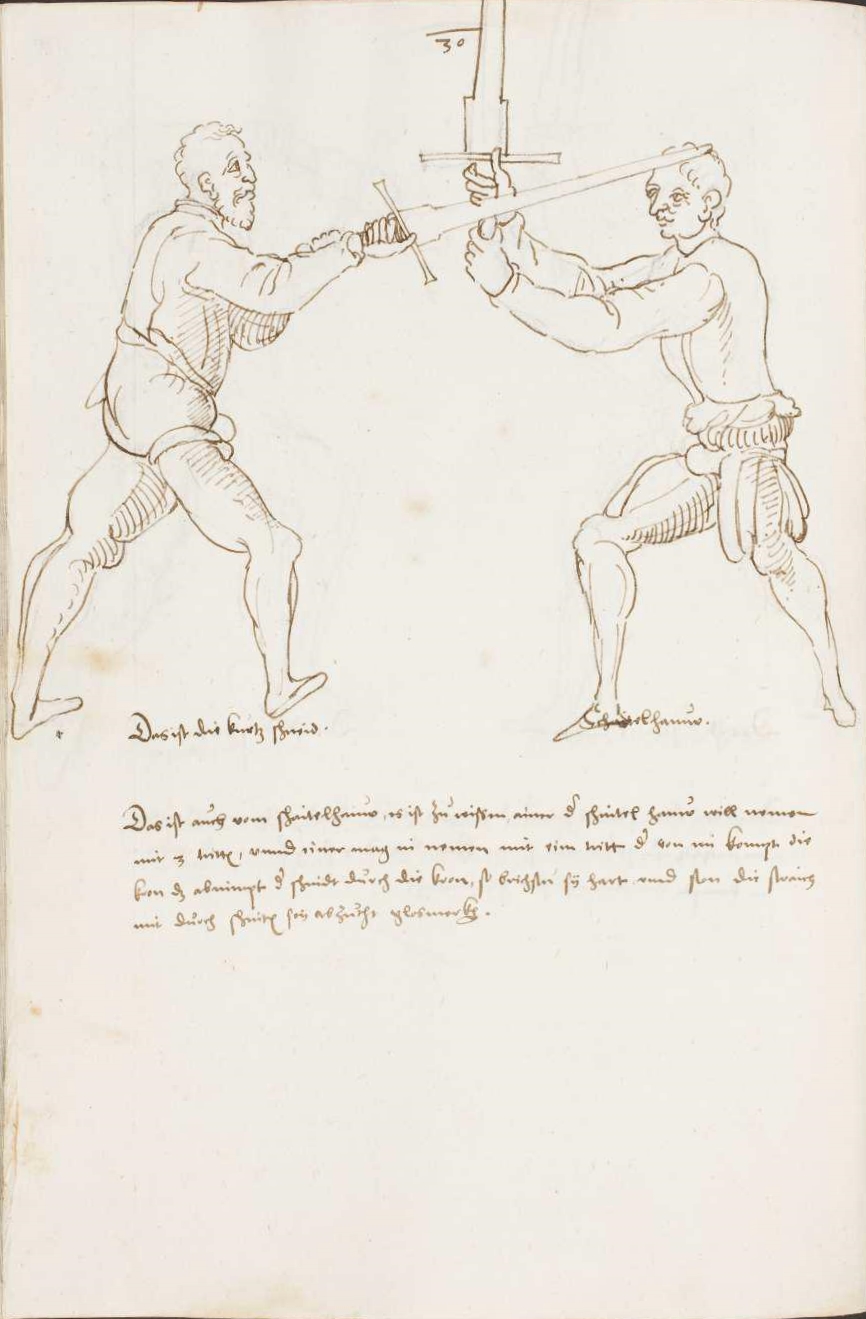 30
Das ist die kurtz schneid.
Schaitelhauw.
Das ist auch vom schaitelhauw, es ist zu wissen ainer d schaitel hauw will nemen
mit 3 tritt, vnnd einer mag in nemen mit eim tritt d von im kompt die
kron dz abnimpt d schnidt durch die kron, so brichstu sy hart vnd die straich
mit durch schnitt abzucht glosmerkh.